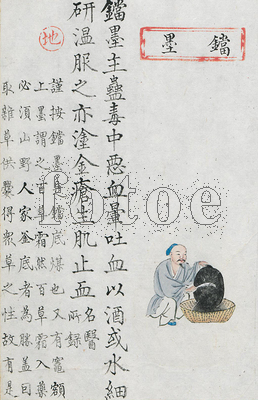 鐺墨
鐺墨主蠱毒中惡血暈吐血以酒或水細
研溫服之亦塗金瘡生肌止血
名醫
所錄
地
謹按鐺墨鐺底煤也又有竈額
上墨謂之百草霜然百草霜入藥
必須山野人家釜底者為勝盖囙
取雜草供爨得衆草之性故有是
fotoe